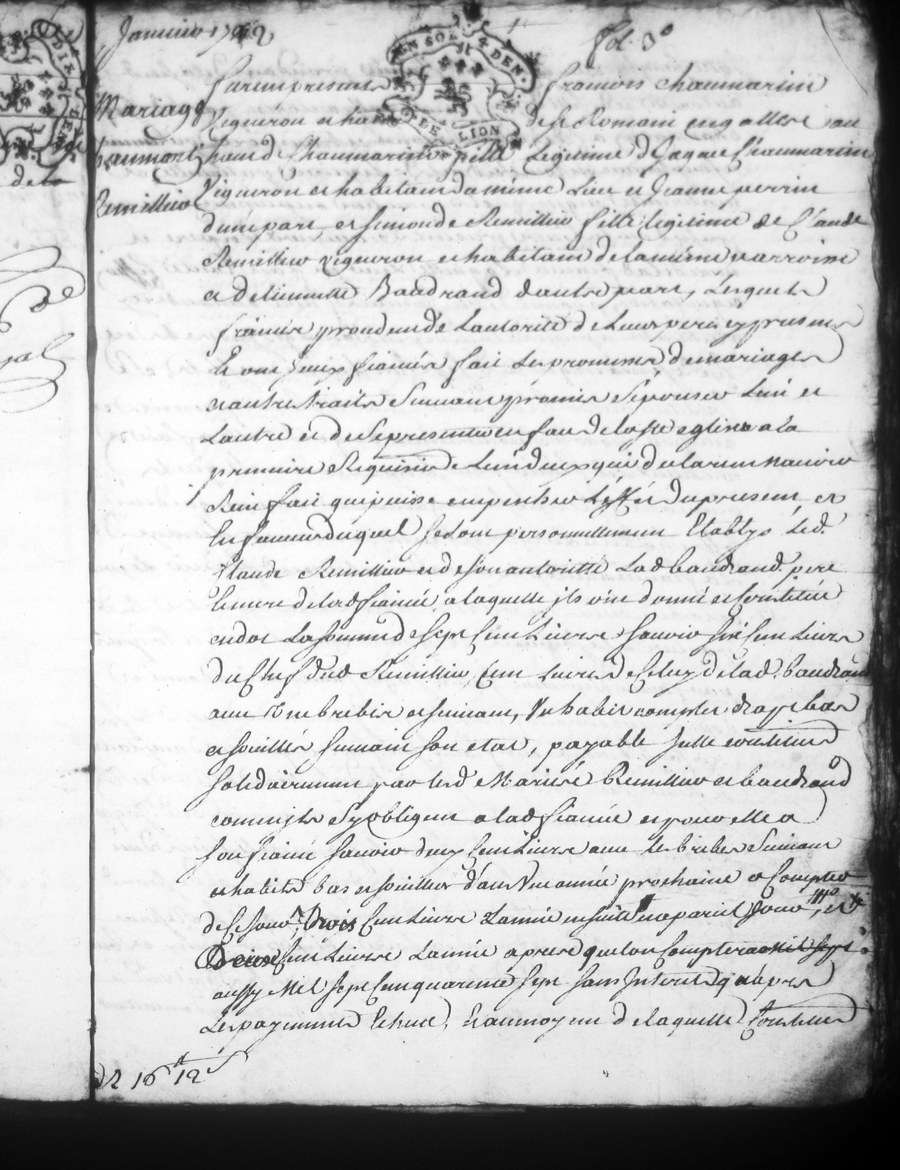 Janvier 1742
fol. 3
EN SOL 4 DEN.
DE LION
Mariage
chaumart
de
Remillieu
furent presents françois chaumartin
Vigneron et hab de st Romain en gallere au
lieu de Chaumartin fils Legitime de Jaque Chaumartin
Vigneron et habitant du même Lieu et Jeanne perrin
d'une part et Simonde Remillieu fille Legitime de Claude
Remillieu vigneron et habitant de la même parroisse
et d'etiennette Baudrand d'autre part, Lesquels
procedent de Lautorité de Leurs peres cy presents
et ont Iceux fiancés fait Les promesses de mariages
et autres traités Suivant promis Sepouser Lun et
Lautre et de Se presenter en face de la ste eglise a la
premiere Requisition de Lun deux qui declarent navoir
Rien fait qui puisse empecher Leffet du present, et
En faveur duquel se sont personnellement Etablys Led.
Claude Remillieu et de son autorité Lad baudrand pere
et mere de lad fiancée, a laquelle ils ont donné et Constitué
en dot La somme de Sept Cent Livres Scavoir Six Cent Livres
du Chef dud Remillieu, Cent Livres de Celuy de Lad. baudrand
avec Une brebis et suivant, Un habit complet drap bas
et souilliers suivant son etat, payable Jcelle constitution
solidairement par Lesd Mariés Remillieu et baudrand
comme ils Sy obligent a lad fiancée et pour elle a
son fiancé Scavoir deux Cent Livres avec Le brebis Suivant
et habits bas et souilliers d'aui Une année prochaine a Compter
de Ce jour, trois Cent Livres Lannée ensuite a pareil jour, et
Deux Cent Livres Lannée apres que lon Comptera Mil sept
aussy Mil Sept Cent quarente Sept sans Interet qu'apres
Les payements Echus, Et aumoyen de laquelle Constitution